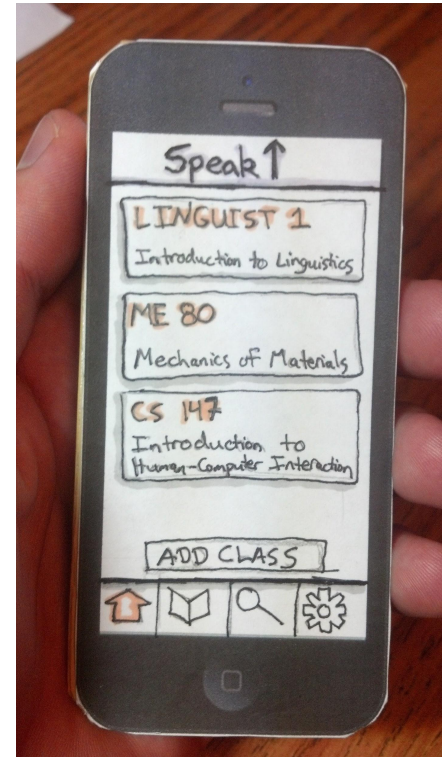 Speak↑
LINGUIST 1
Introduction to Linguistics
ME 80
Mechanics of Materials
CS 147
Introduction to
Human-Computer Interaction
ADD CLASS